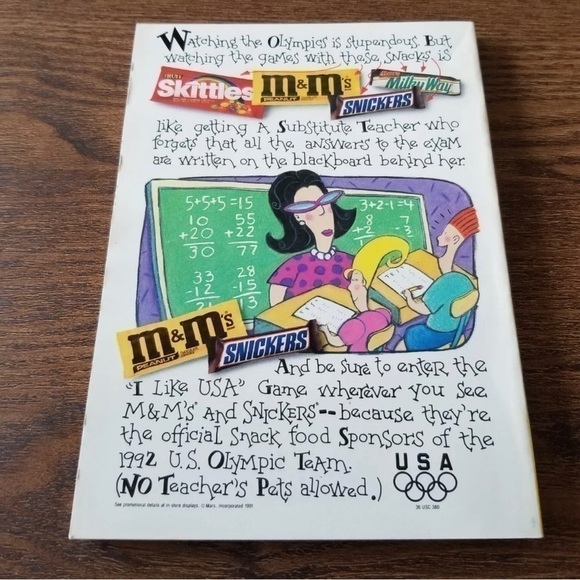 Watching the Olympics is stupendous. But
watching the games with these snacks is
Skittles
m&m's
PEANUT
SNICKERS
Milky Way
like getting A Substitute Teacher who
forgets that all the answers to the exam
are written on the blackboard behind her.
5+5+5=15
3+2-1=4
10
+20
30
55
+22
77
8
+2
7
-3
33
-12
28
-15
13
m&m's
PEANUT
SNICKERS
And be sure to enter the
"I Like USA" Game wherever you see
M&M's® and SNICKERS®--because they're
the official snack food Sponsors of the
1992 U.S. Olympic Team.
(NO Teacher's Pets allowed.)
USA
See promotional details at in-store displays. © Mars, Incorporated 1991
36 USC 380